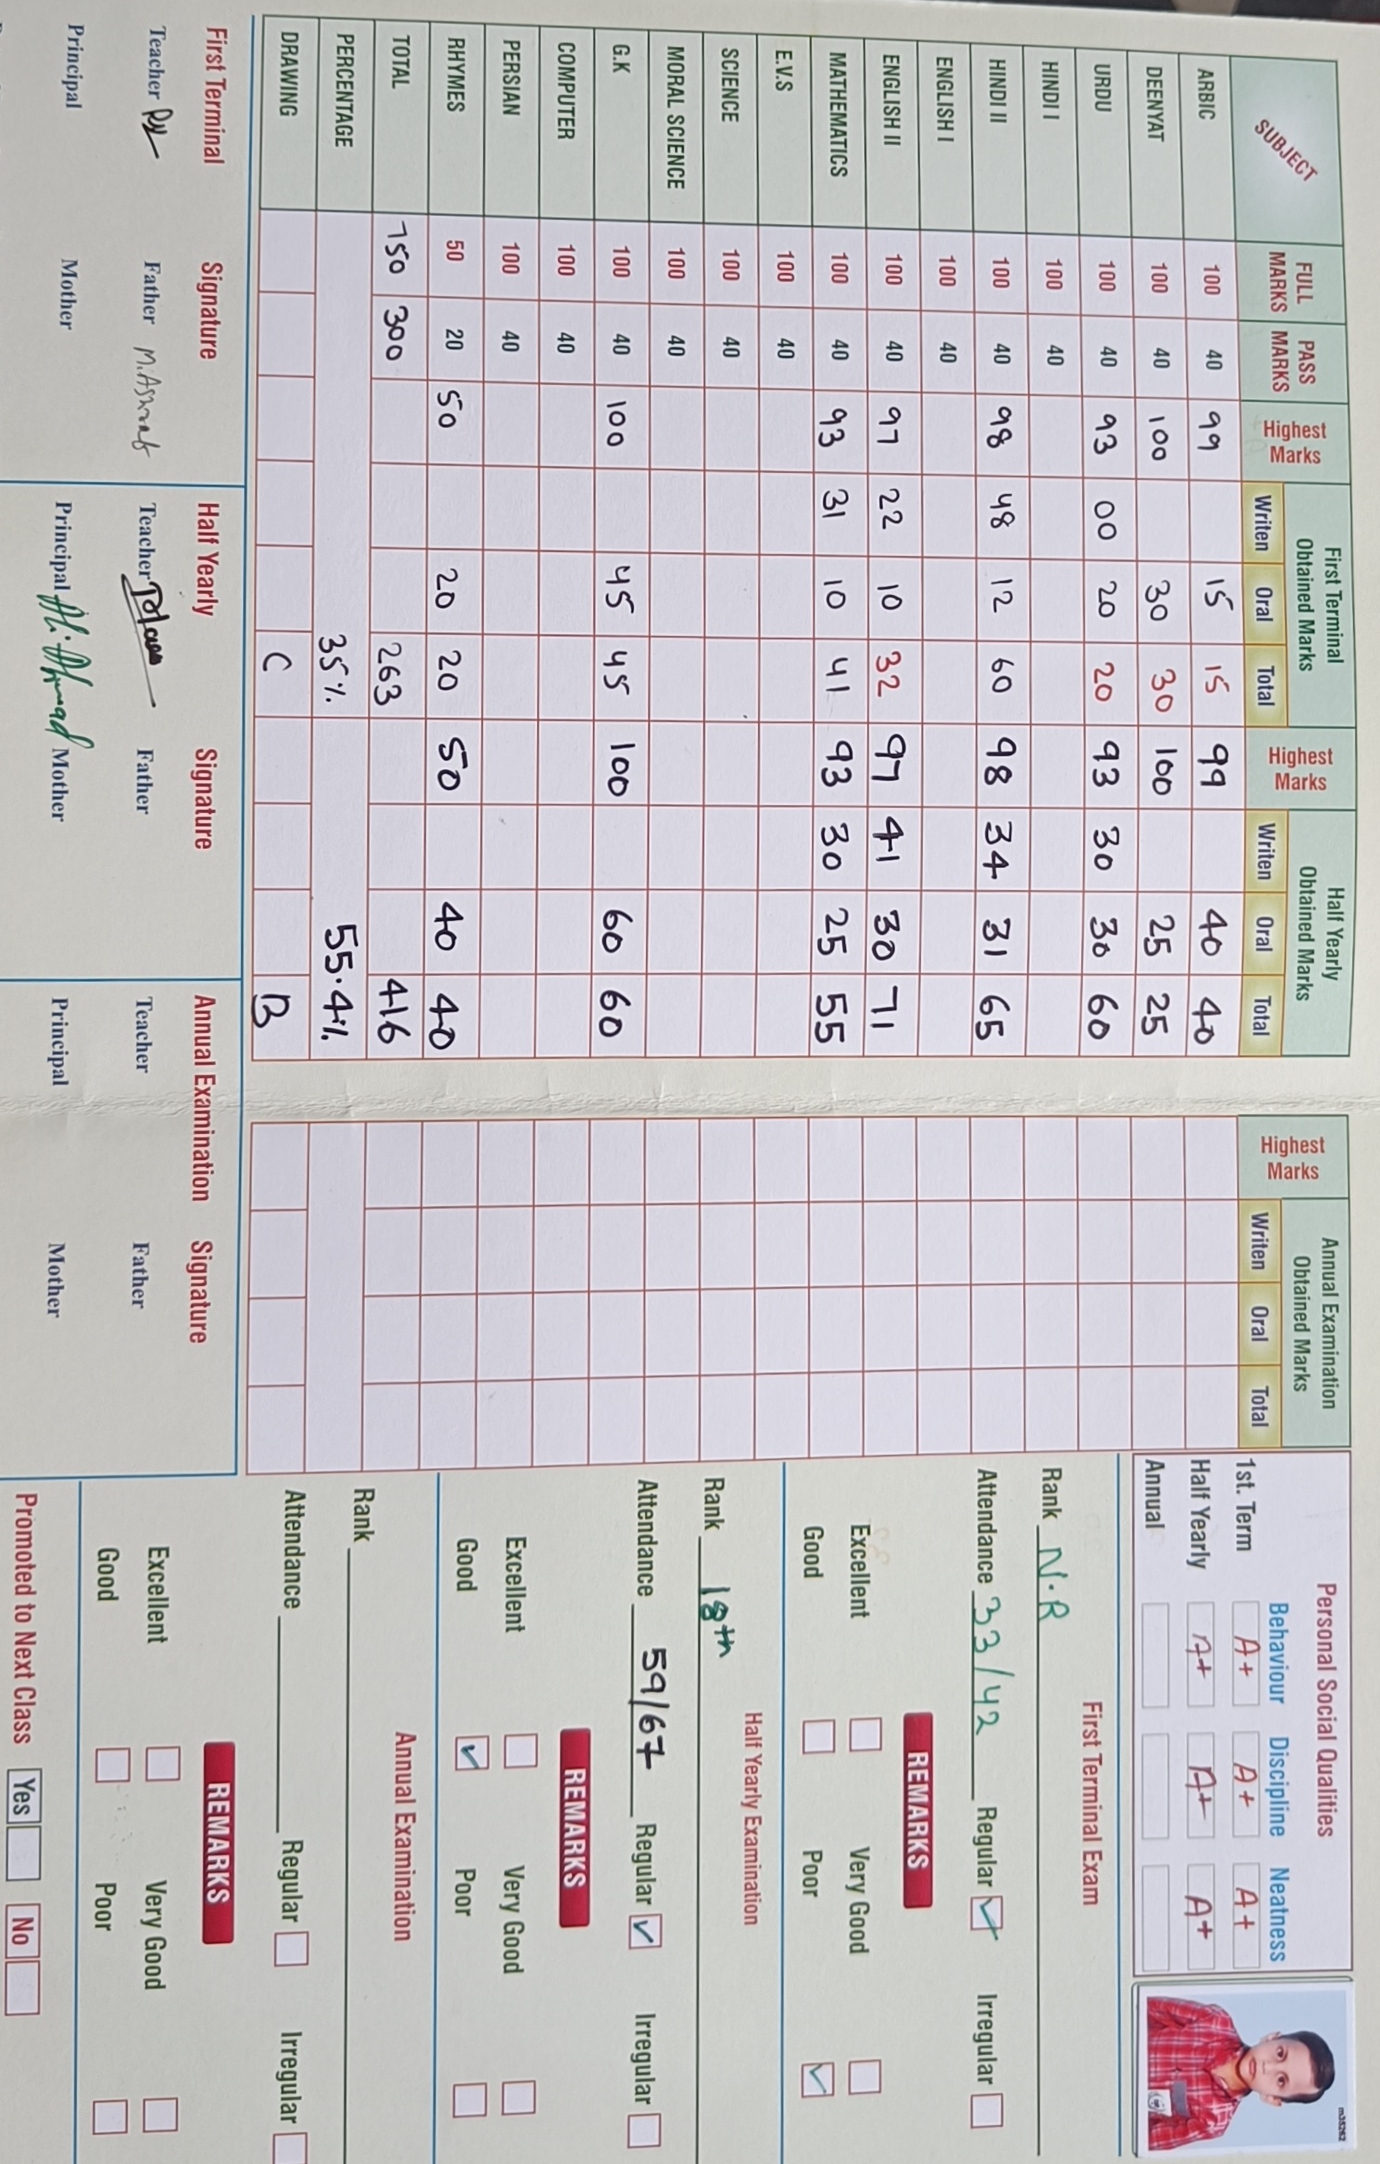 SUBJECT FULL MARKS PASS MARKS Highest Marks First Terminal Obtained Marks Highest Marks Half Yearly Obtained Marks Highest Marks Annual Examination Obtained Marks
Writen Oral Total Writen Oral Total Writen Oral Total
ARBIC 100 40 99 15 15 99 40 40
DEENYAT 100 40 100 30 30 100 25 25
URDU 100 40 93 00 20 20 93 30 30 60
HINDI I 100 40
HINDI II 100 40 98 48 12 60 98 34 31 65
ENGLISH I 100 40
ENGLISH II 100 40 97 22 10 32 97 41 30 71
MATHEMATICS 100 40 93 31 10 41 93 30 25 55
E.V.S 100 40
SCIENCE 100 40
MORAL SCIENCE 100 40
G.K 100 40 100 45 45 100 60 60
COMPUTER 100 40
PERSIAN 100 40
RHYMES 50 20 50 20 20 50 40 40
TOTAL 750 300 263 416
PERCENTAGE 35% 55.4%
DRAWING C B
First Terminal Signature
Teacher Father M.Ashraf
Principal Mother
Half Yearly Signature
Teacher Father
Principal Ali Ahmad Mother
Annual Examination Signature
Teacher Father
Principal Mother
Personal Social Qualities
Behaviour Discipline Neatness
1st. Term A+ A+ A+
Half Yearly A+ A+ A+
Annual
m35262
First Terminal Exam
Rank N.R
Attendance 33/42 Regular Irregular
REMARKS
Excellent Very Good
Good Poor
Half Yearly Examination
Rank 18th
Attendance 59/67 Regular Irregular
REMARKS
Excellent Very Good
Good Poor
Annual Examination
Rank
Attendance Regular Irregular
REMARKS
Excellent Very Good
Good Poor
Promoted to Next Class Yes No